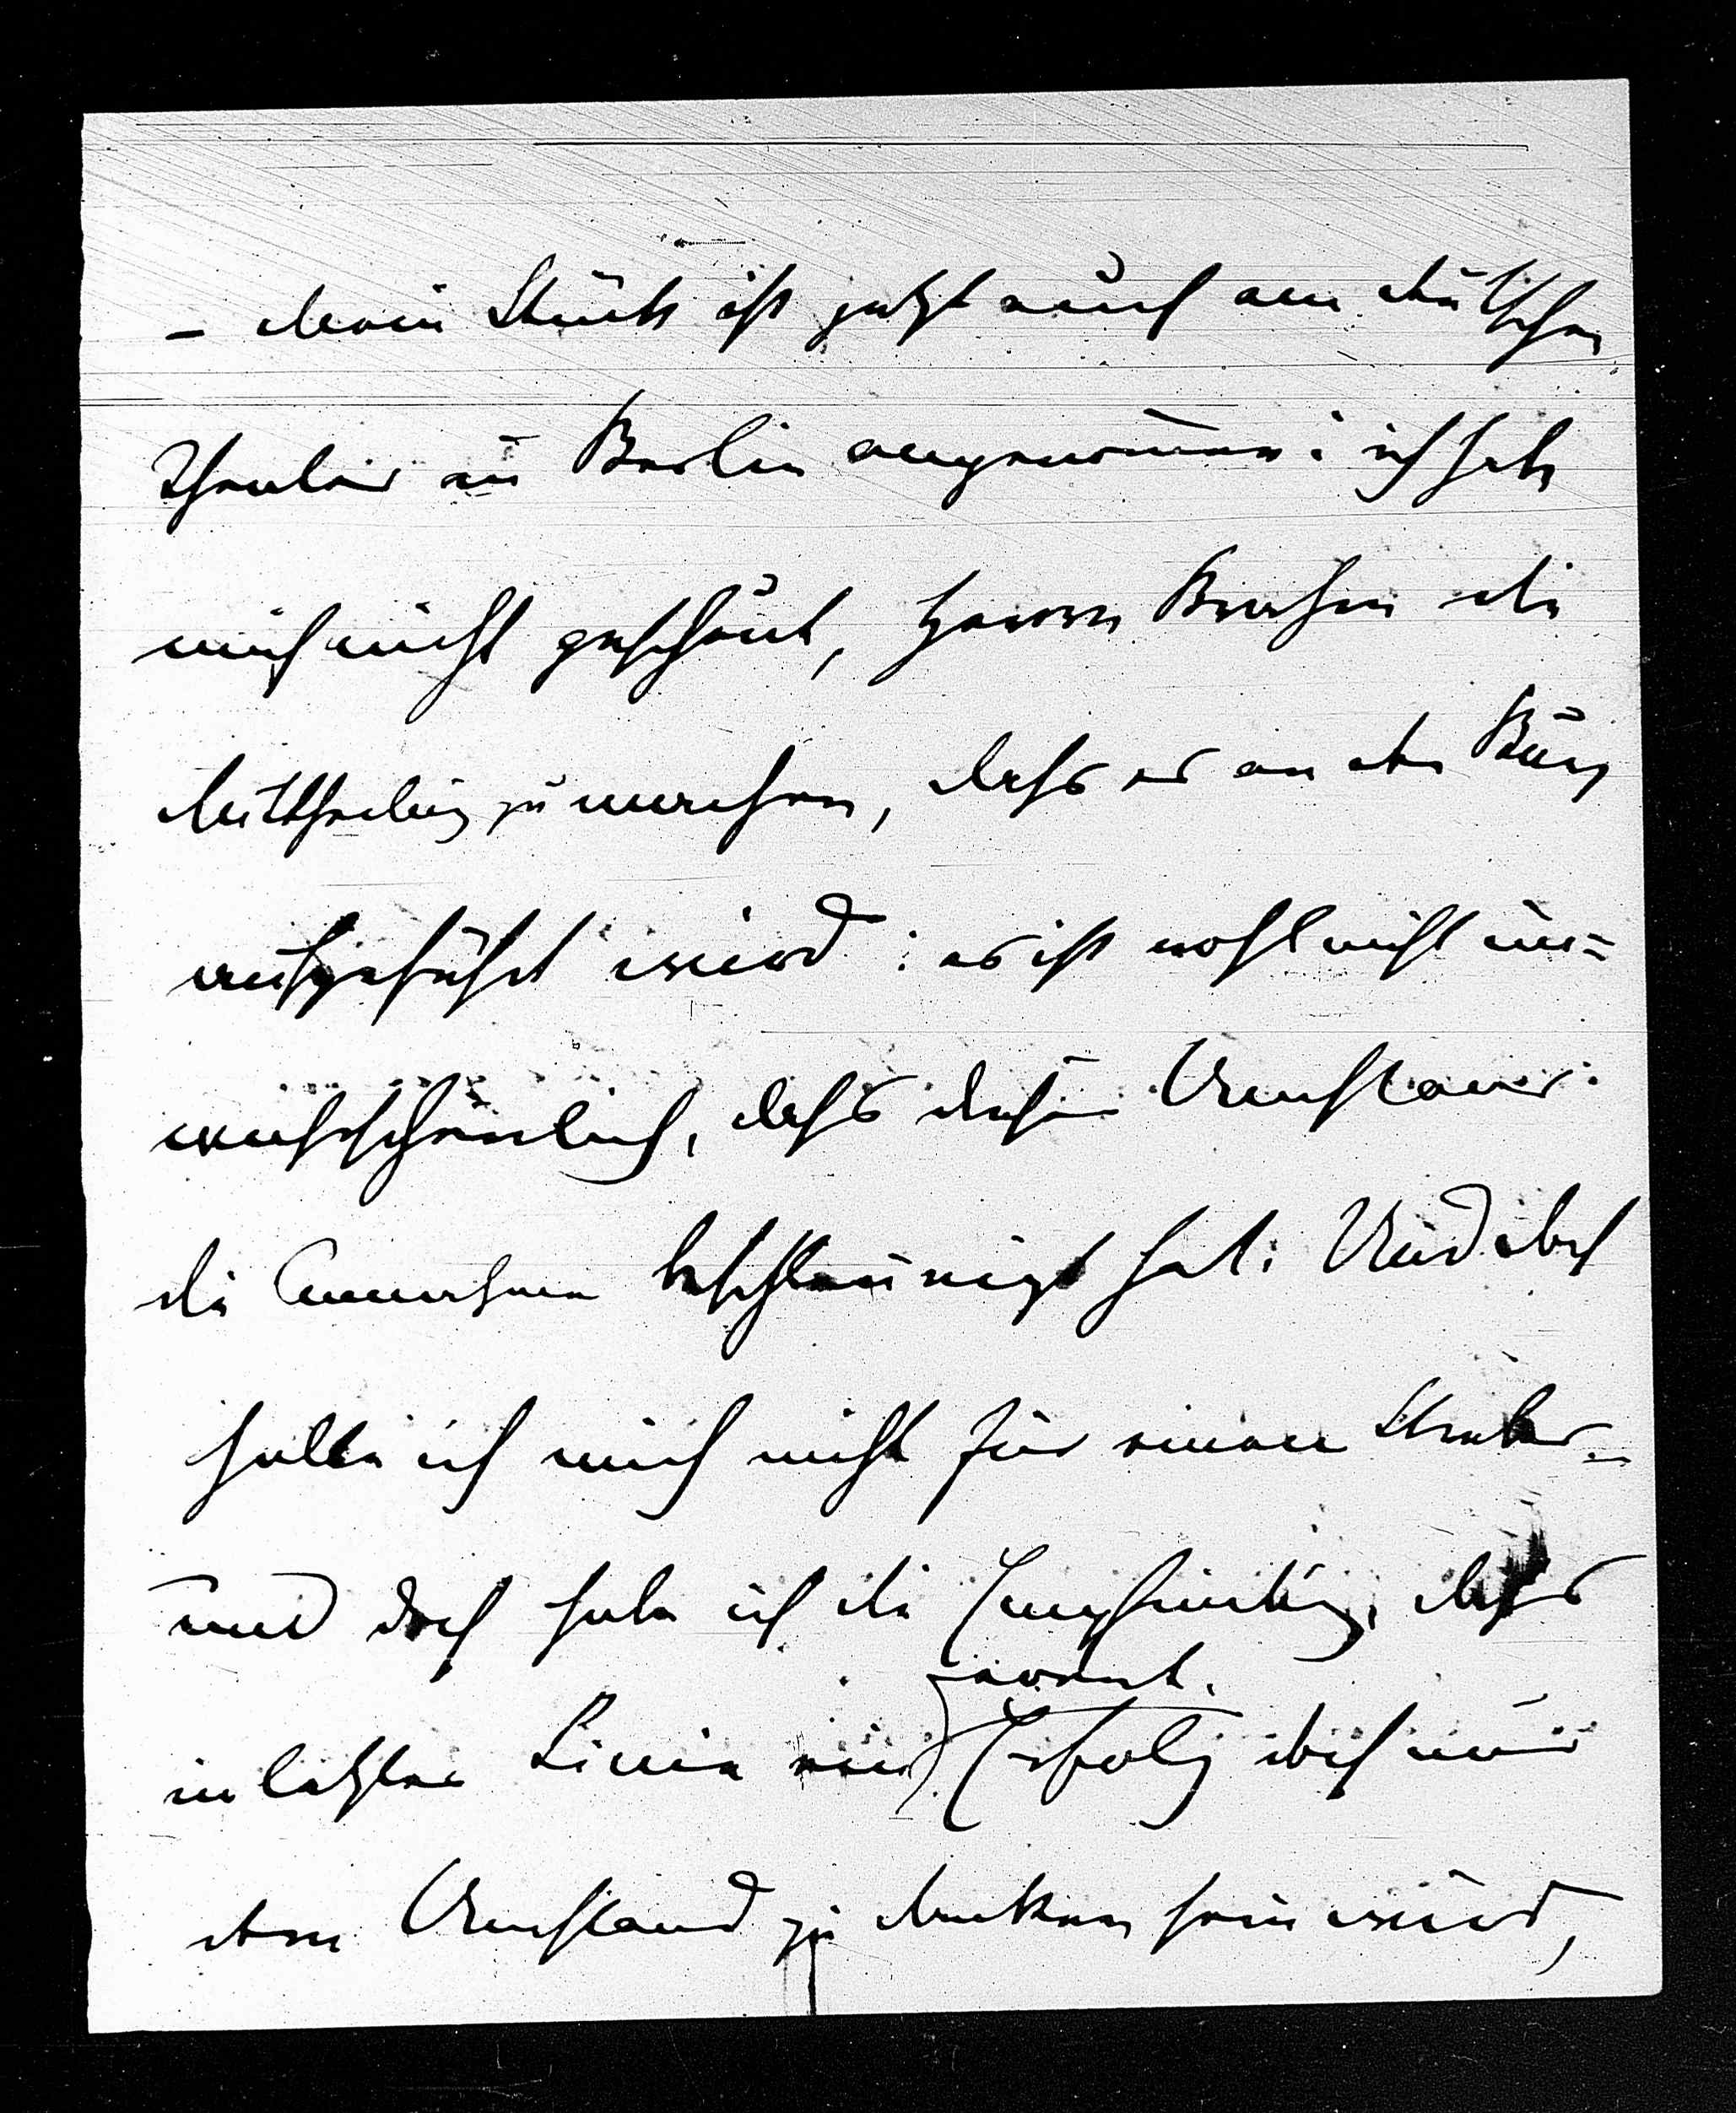 – Mein Stück ist jetzt auch am deutschen
Theater in Berlin angenom̅en: ich habe
mich nicht gescheut, Herrn Brahm die
Mittheilung zu machen, dass es an der Burg
aufgeführt wird: es ist wohl nicht un=
wahrscheinlich, dass dieser Umstand
die Annahme beschleunigt hat. Und doch
halte ich mich nicht für einen Streber –
und doch habe ich die Empfindung, dass
in letzter Linie ein event. Erfolg doch nur
dem Umstand zu danken sein wird,